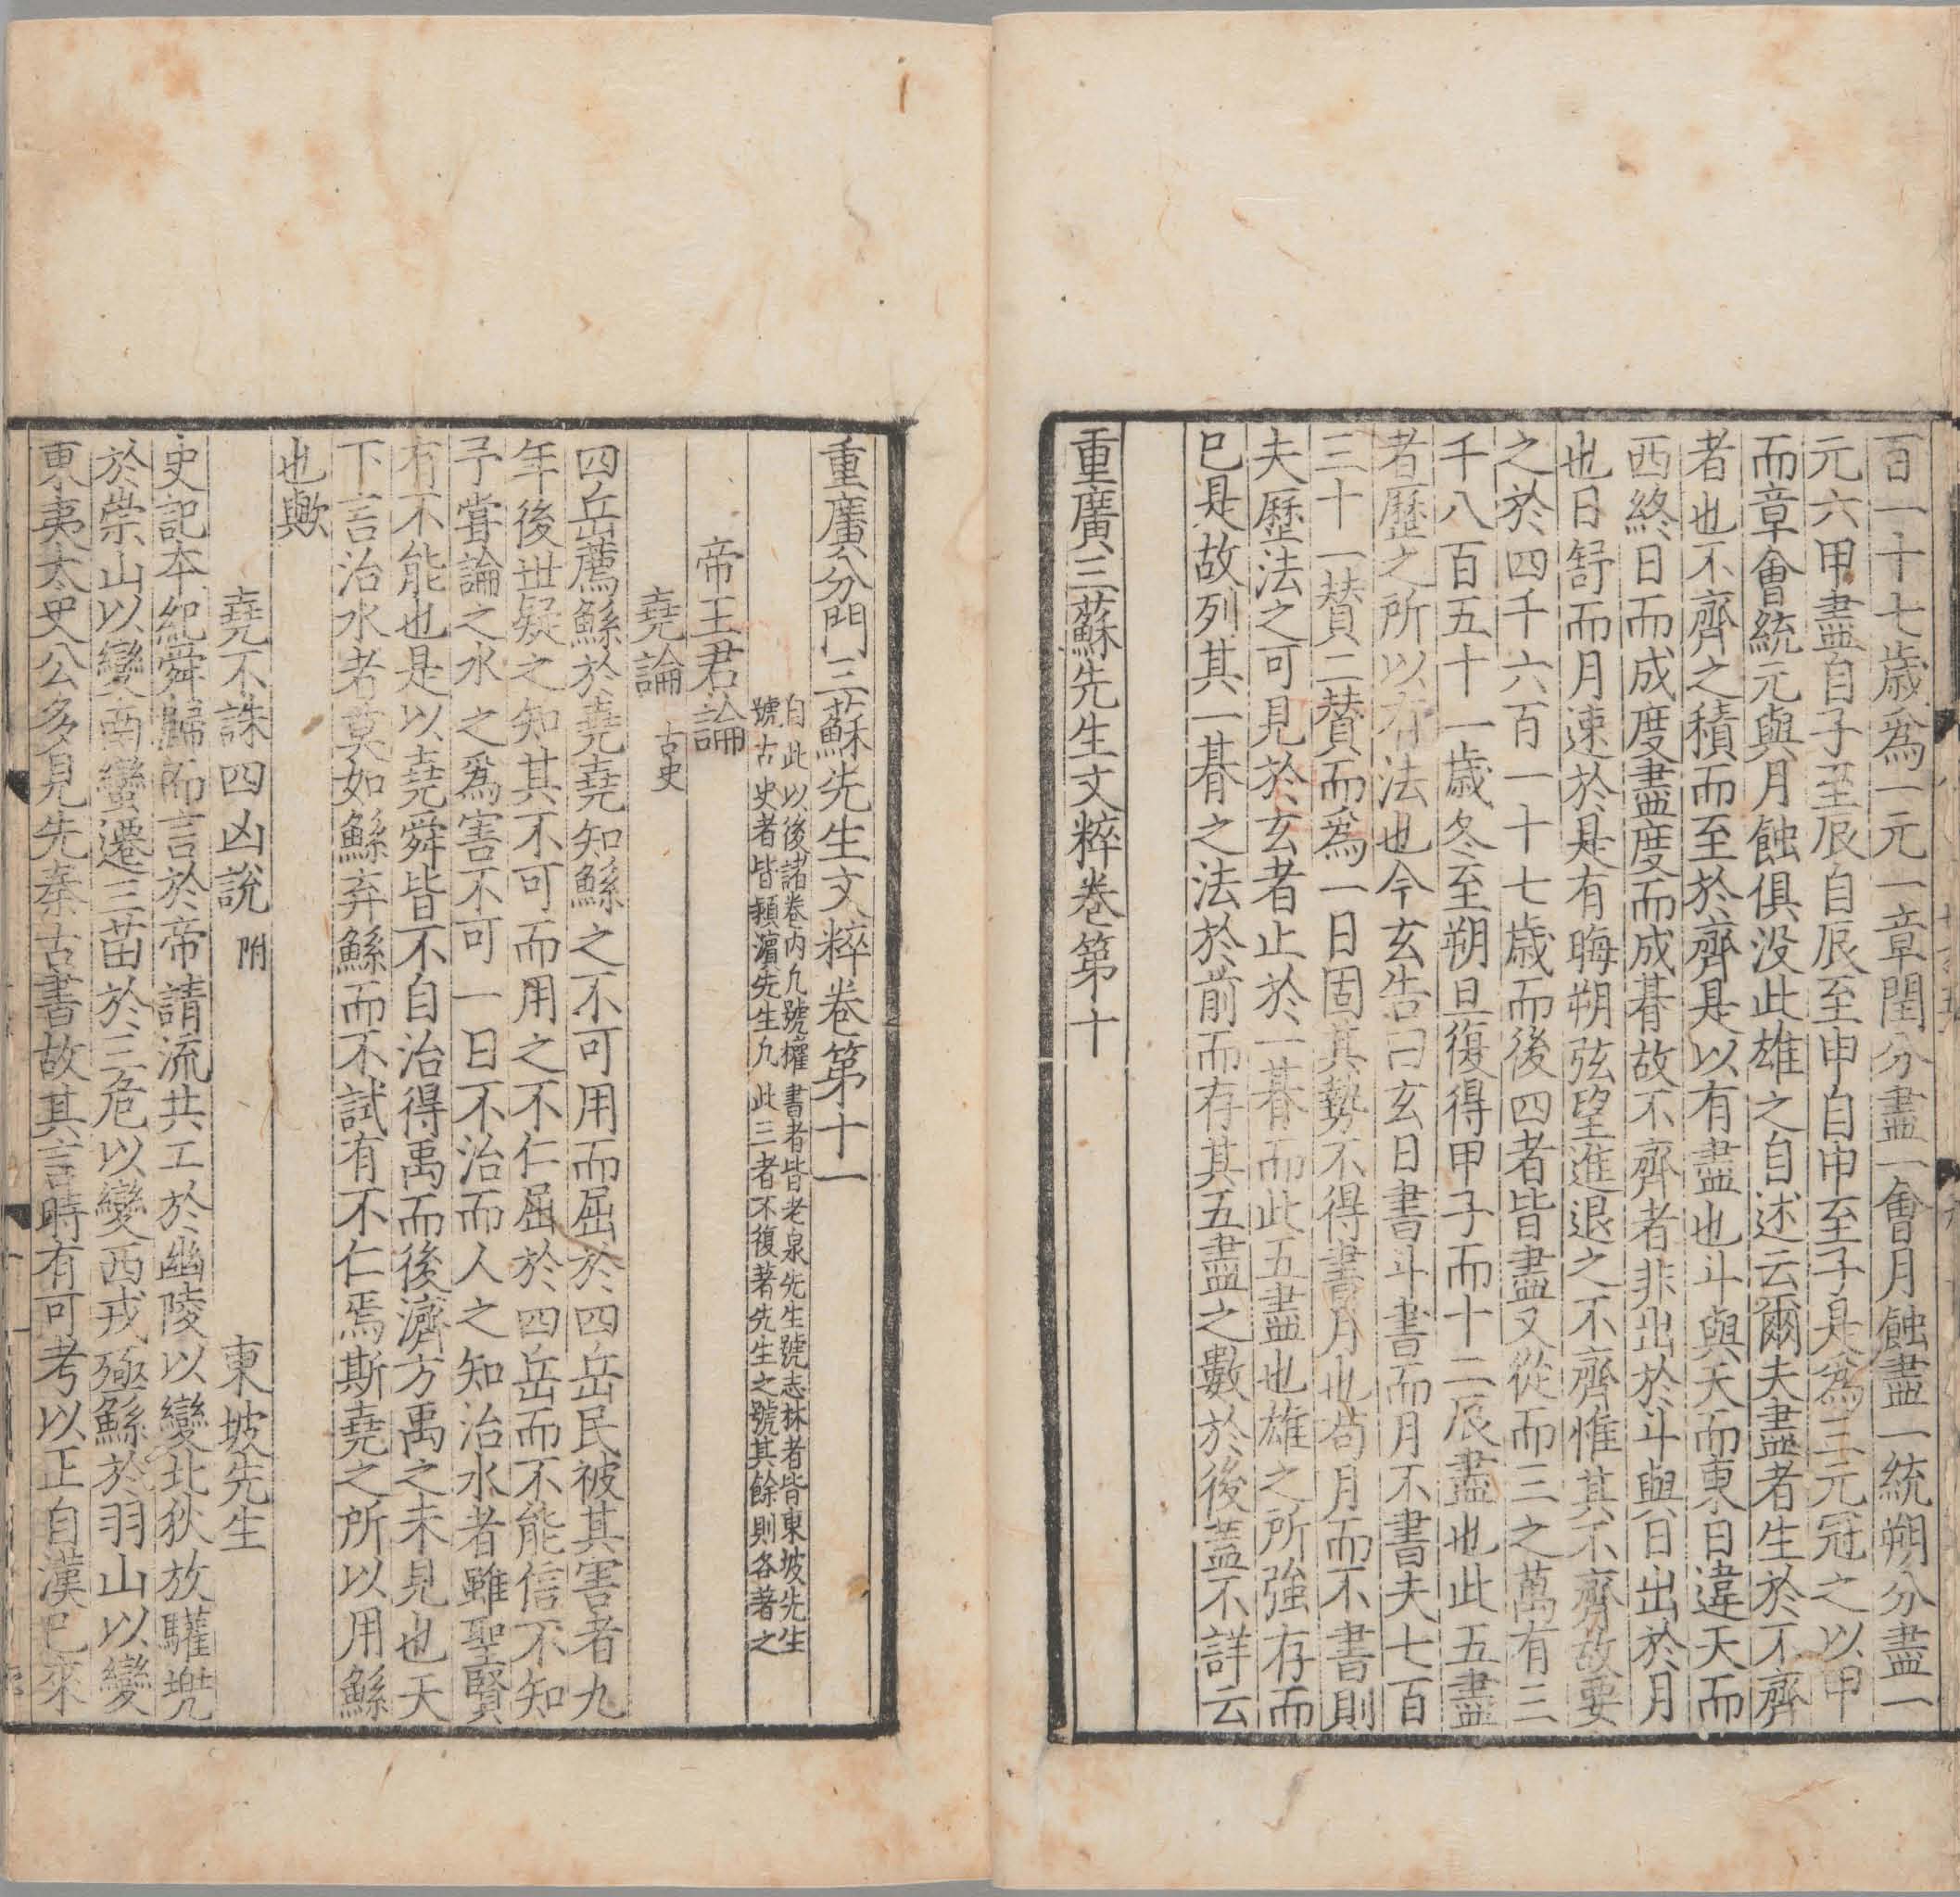 百一十七歳爲一元一章閏分盡一㑹月蝕盡一統朔分盡一
元六甲盡自子至辰自辰至申自申至子是爲三元冠之以甲
而章㑹統元與月蝕俱没此雄之自述云爾夫盡者生於不齊
者也不齊之積而至於齊是以有盡也斗與天而東日違天而
西終日而成度盡度而成朞故不齊者非出於斗與日出於月
也日舒而月速於是有晦朔弦望進退之不齊惟其不齊故要
之於四千六百一十七歳而後四者皆盡又從而三之萬有三
千八百五十一歳冬至朔旦復得甲子而十二辰盡也此五盡
者歷之所以有法也今玄告曰玄日書斗書而月不書夫七百
三十一賛二賛而爲一日固其勢不得書月也苟月而不書則
夫歷法之可見於玄者止於一朞而此五盡也雄之所強存而
巳是故列其一朞之法於前而存其五盡之數於後蓋不詳云
重廣三蘇先生文粹卷第十
重廣分門三蘇先生文粹卷第十一
自此以後諸卷内凢號權書者皆老泉先生號志林者皆東坡先生
號古史者皆頴濵先生凢此三者不復著先生之號其餘則各著之
帝王君論
堯論 古史
四岳薦鯀於堯堯知鯀之不可用而屈於四岳民被其害者九
年後世疑之知其不可而用之不仁屈於四岳而不能信不知
予甞論之水之爲害不可一日不治而人之知治水者雖聖賢
有不能也是以堯舜皆不自治得禹而後濟方禹之未見也天
下言治水者莫如鯀弃鯀而不試有不仁焉斯堯之所以用鯀
也歟
堯不誅四凶說 附 東坡先生
史記本紀舜歸而言於帝請流共工於幽陵以變北狄放驩兠
於崇山以變南蠻遷三苗於三危以變西戎殛鯀於羽山以變
東夷太史公多見先秦古書故其言時有可考以正自漢巳來